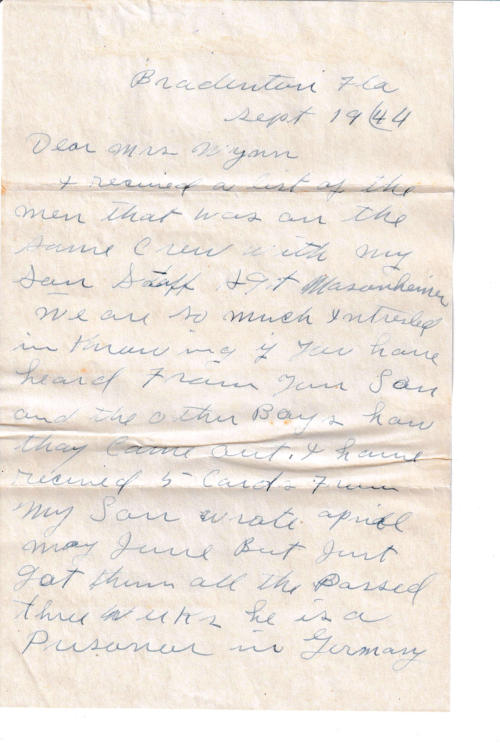 Bradenton Fla
Sept 1944
Dear Mrs Wynn
I recived a list of the
men that was on the
same Crew with my
Son Staff Sgt Masonheimer
We are so much Intrested
in Knowing if You have
heard From Your Son
and the other Boys how
thay Came out. I have
recived 5 Cards From
My Son wrote april
may June But Just
got them all the Passed
three weeks he is a
Prisoner in Germany